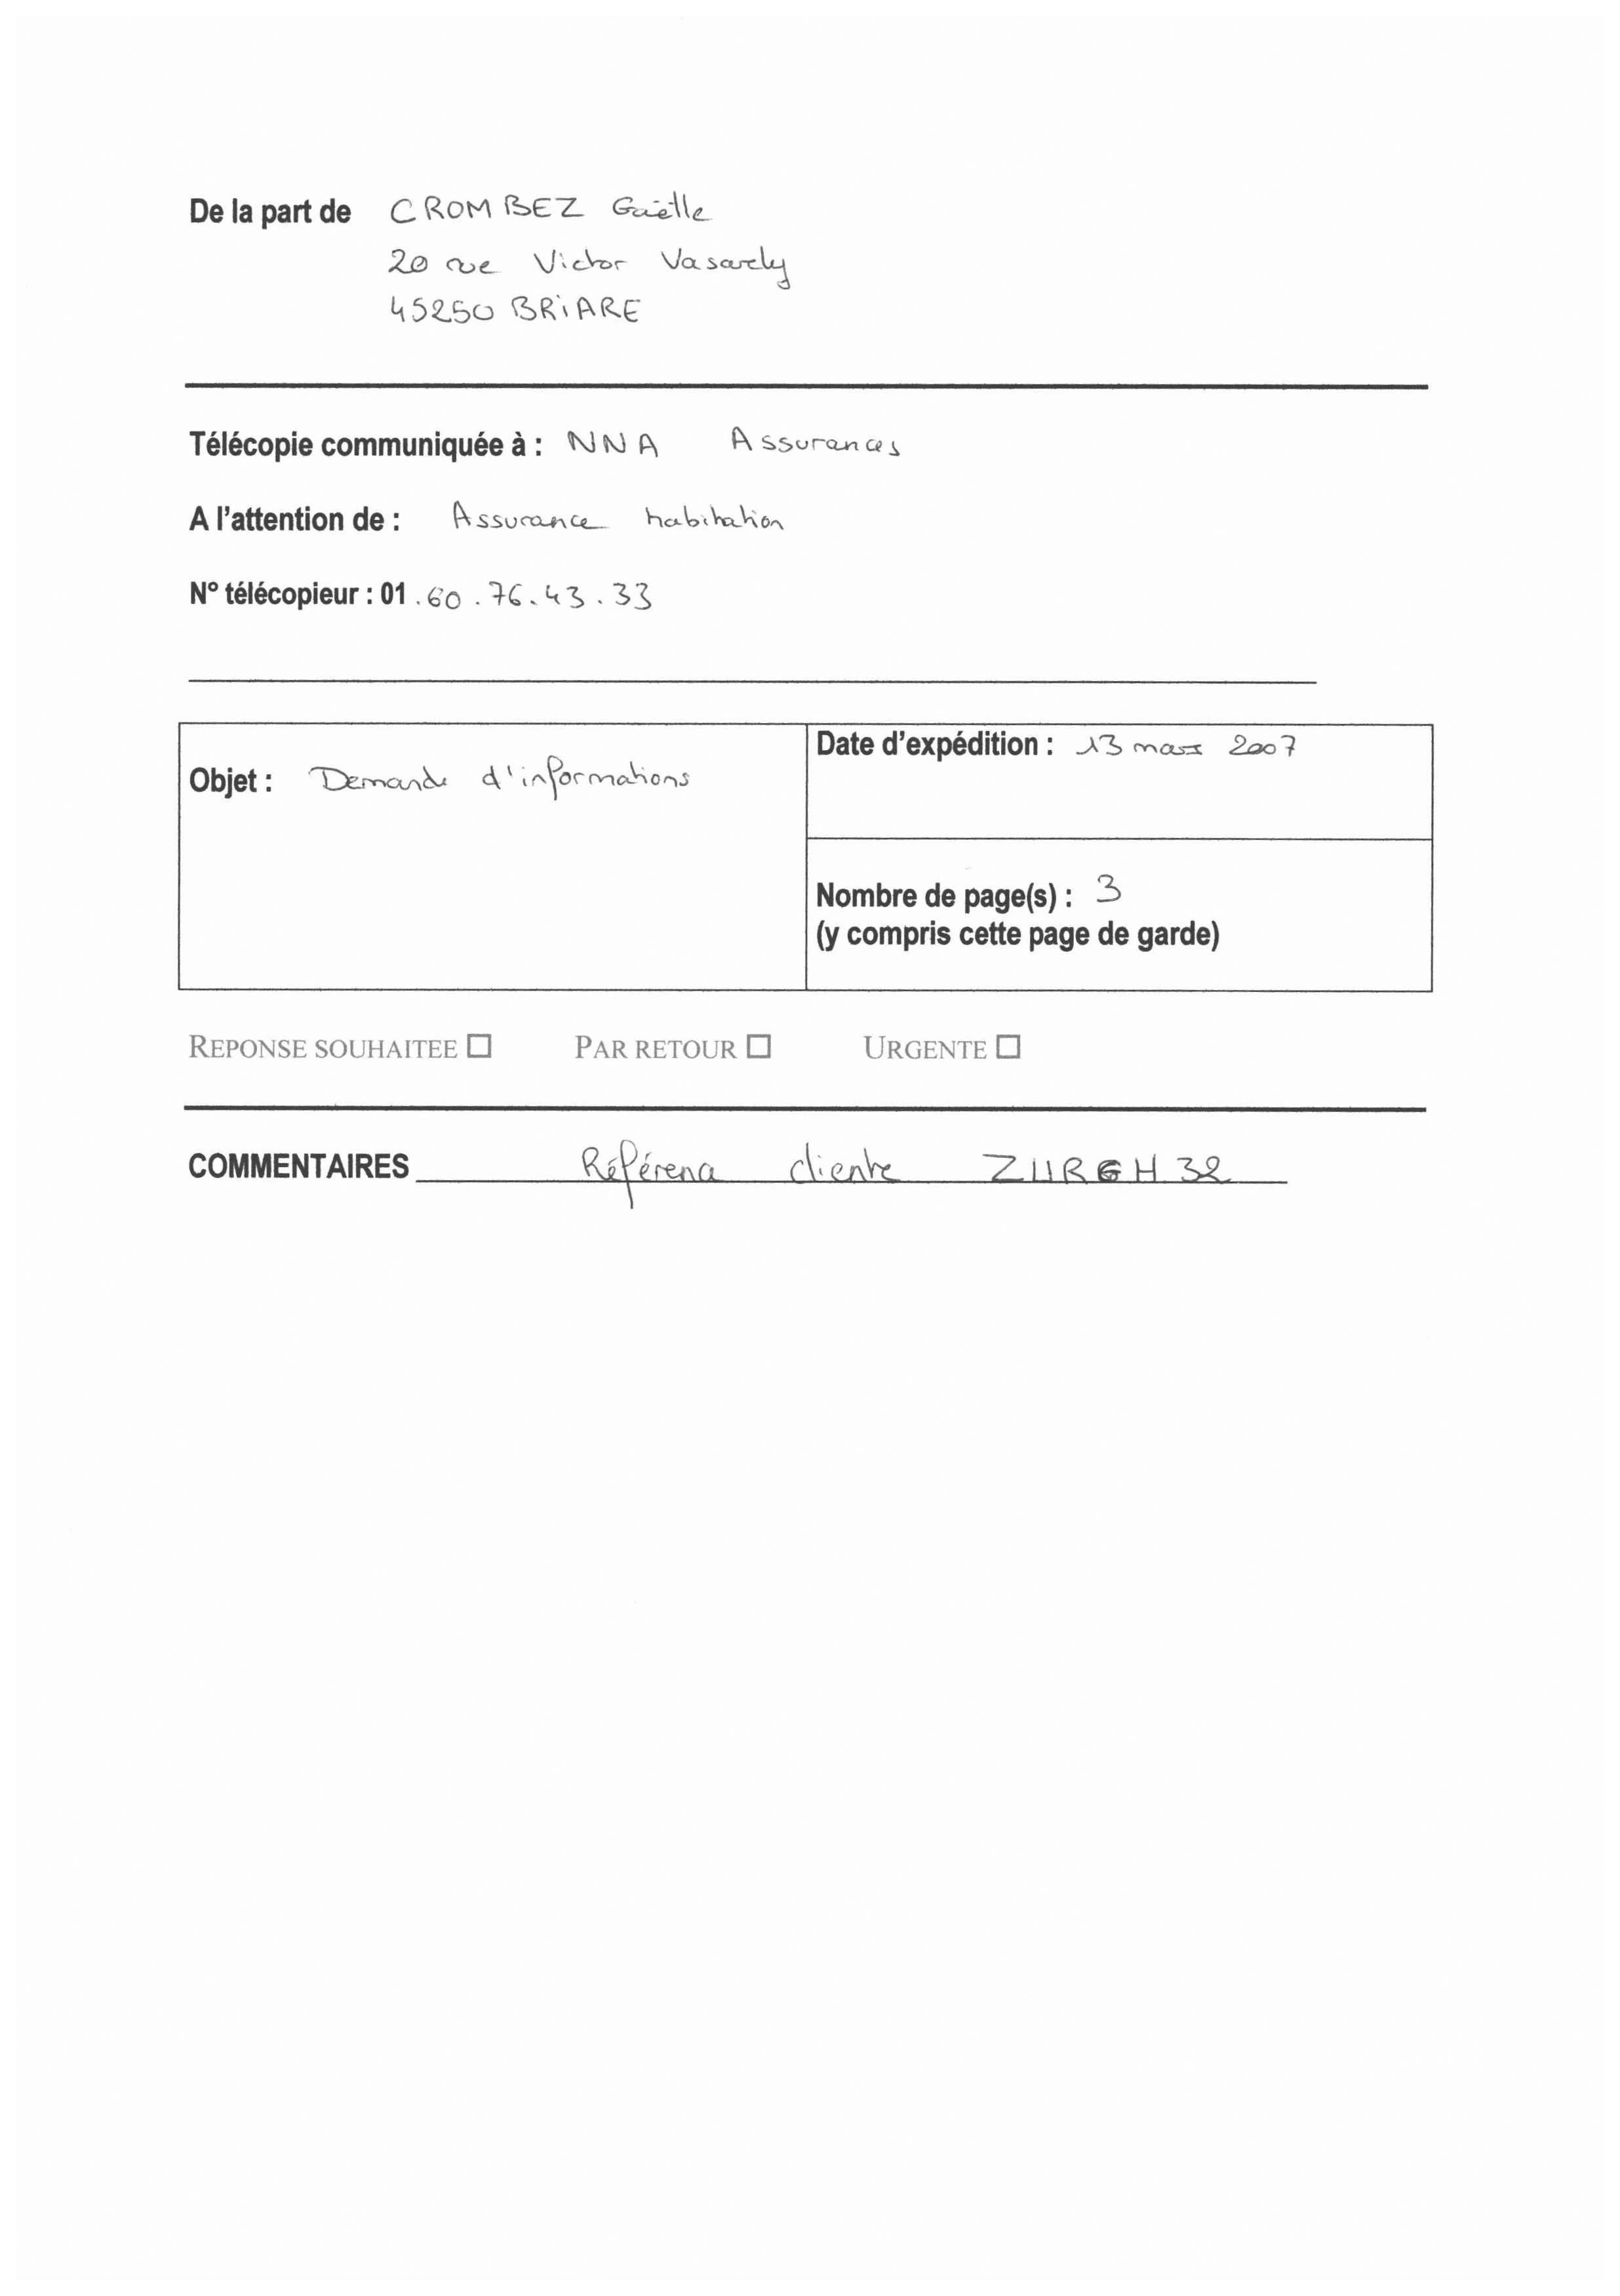 De la part de CROMBEZ Gaëlle
20 rue Victor Vasarely
45250 BRIARE
Télécopie communiquée à : NNA Assurances
A l'attention de : Assurance habitation
N° télécopieur : 01.60.76.43.33
Objet : Demande d'informations
Date d'expédition : 13 mars 2007
Nombre de page(s) : 3
(y compris cette page de garde)
REPONSE SOUHAITEE ☐ PAR RETOUR ☐ URGENTE ☐
COMMENTAIRES Référence cliente ZURGH32